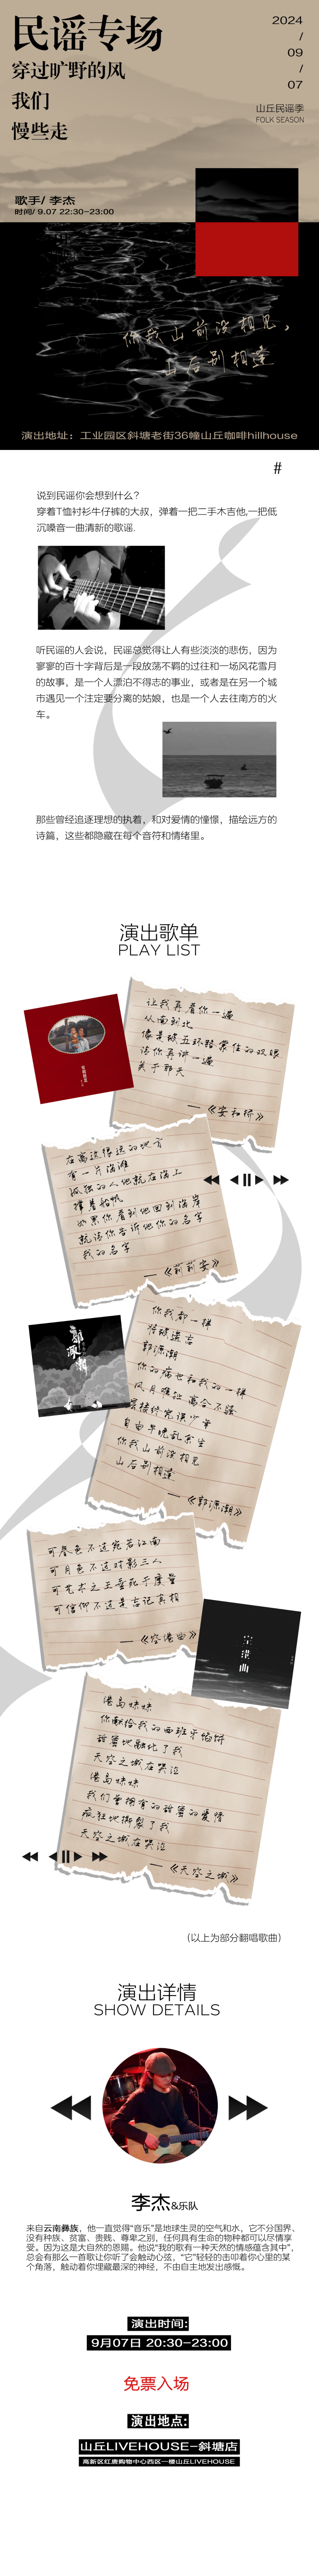 民谣专场
穿过旷野的风
我们
慢些走
2024
/
09
/
07
山丘民谣季
FOLK SEASON
歌手/ 李杰
时间/ 9.07 22:30-23:00
你我山前没相见，
山后别相逢
演出地址：工业园区斜塘老街36幢山丘咖啡hillhouse
#
说到民谣你会想到什么？
穿着T恤衬衫牛仔裤的大叔，弹着一把二手木吉他,一把低
沉嗓音一曲清新的歌谣.
听民谣的人会说，民谣总觉得让人有些淡淡的悲伤，因为
寥寥的百十字背后是一段放荡不羁的过往和一场风花雪月
的故事，是一个人漂泊不得志的事业，或者是在另一个城
市遇见一个注定要分离的姑娘，也是一个人去往南方的火
车。
那些曾经追逐理想的执着，和对爱情的憧憬，描绘远方的
诗篇，这些都隐藏在每个音符和情绪里。
演出歌单
PLAY LIST
让我再看你一遍
从南到北
像是被五环路蒙住的双眼
请你再讲一遍
关于那天
—《安和桥》
在离这很远的地方
有一片海滩
孤独的人他就在海上
撑着船帆
如果你看到他回到海岸
就请你告诉他你的名字
我的名字
—《莉莉安》
郭源潮
你我都一样
将被遗忘
郭源潮
你的病也和我的一样
风月难扯 离合不骚
层楼终究误少年
自由早晚乱余生
你我山前没相见
山后别相逢
—《郭源潮》
可春色不过宛若江南
可月色不过对影三人
可艺术之王垂死于度量
可信仰不过是忘记真相
—《空港曲》
空港曲
港岛妹妹
你献给我的西班牙馅饼
甜蜜地融化了我
天空之城在哭泣
港岛妹妹
我们曾拥有的甜蜜的爱情
疯狂地撕裂了我
天空之城在哭泣
—《天空之城》
（以上为部分翻唱歌曲）
演出详情
SHOW DETAILS
李杰&乐队
来自云南彝族，他一直觉得“音乐”是地球生灵的空气和水，它不分国界、
没有种族、贫富、贵贱、尊卑之别，任何具有生命的物种都可以尽情享
受。因为这是大自然的恩赐。他说“我的歌有一种天然的情感蕴含其中”，
总会有那么一首歌让你听了会触动心弦，“它”轻轻的击叩着你心里的某
个角落，触动着你埋藏最深的神经，不由自主地发出感慨。
演出时间:
9月07日 20:30-23:00
免票入场
演出地点:
山丘LIVEHOUSE-斜塘店
高新区红唐购物中心西区一楼山丘LIVEHOUSE